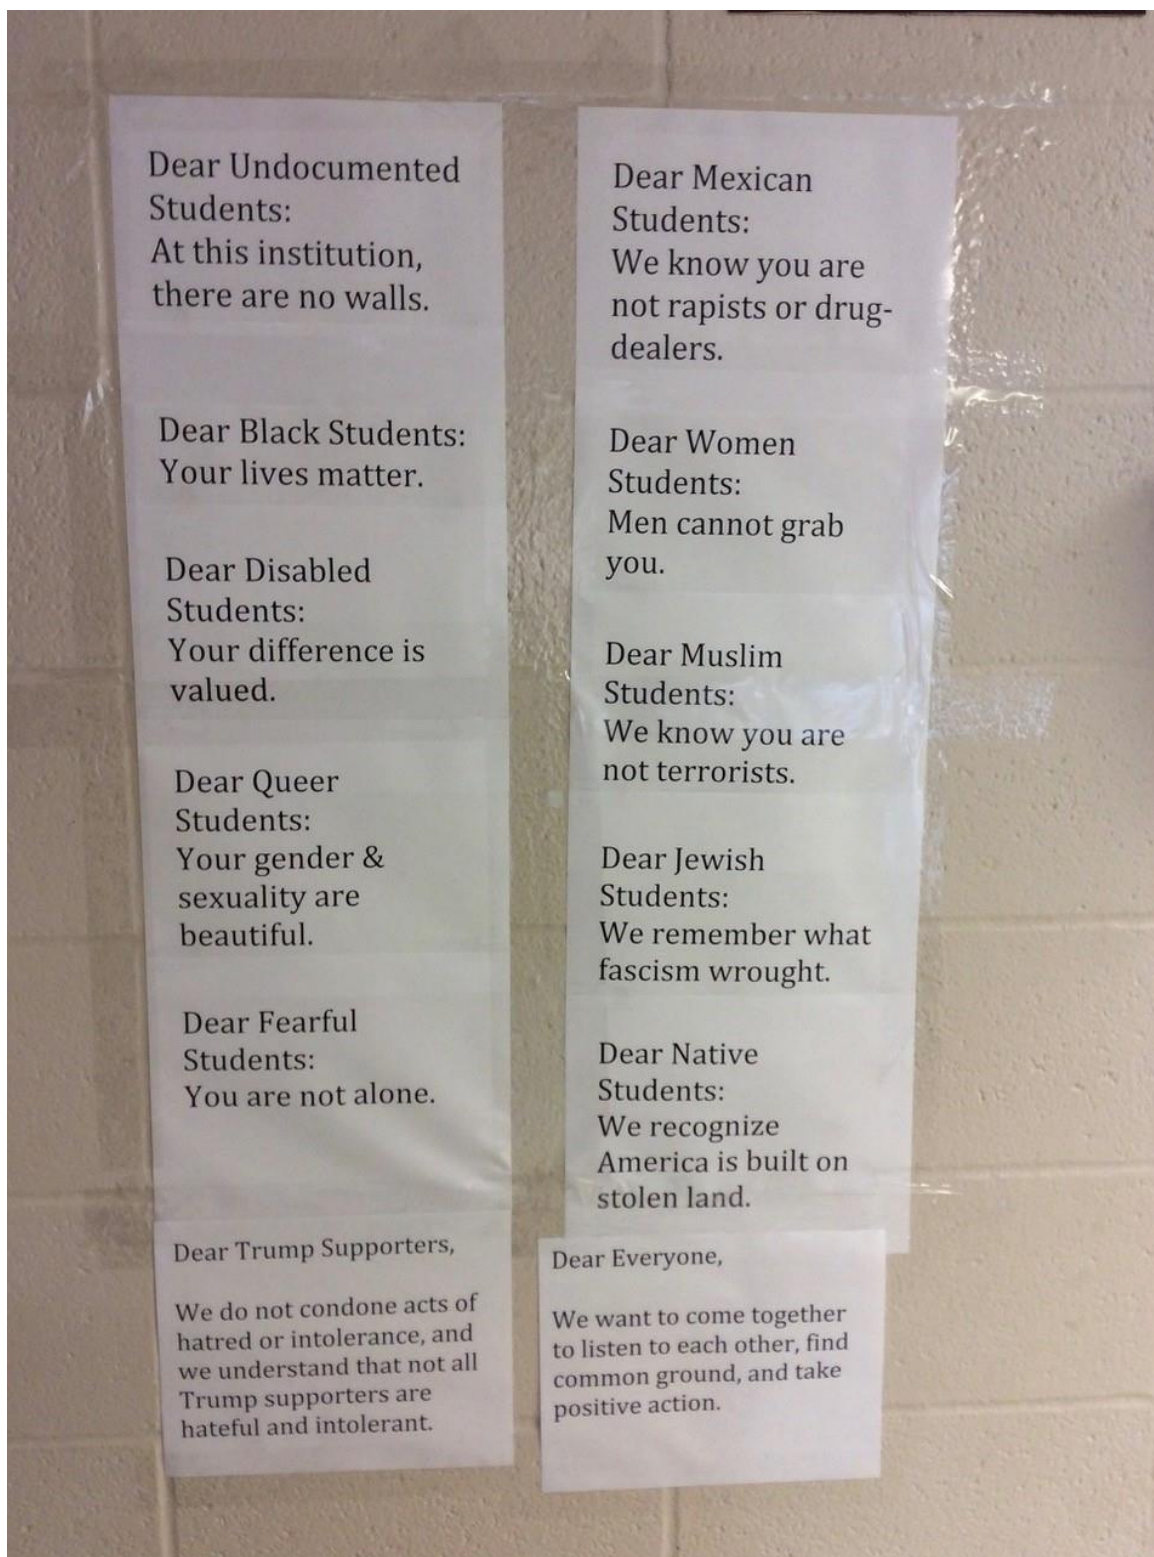 Dear Undocumented
Students:
At this institution,
there are no walls.
Dear Black Students:
Your lives matter.
Dear Disabled
Students:
Your difference is
valued.
Dear Queer
Students:
Your gender &
sexuality are
beautiful.
Dear Fearful
Students:
You are not alone.
Dear Trump Supporters,
We do not condone acts of
hatred or intolerance, and
we understand that not all
Trump supporters are
hateful and intolerant.
Dear Mexican
Students:
We know you are
not rapists or drug-
dealers.
Dear Women
Students:
Men cannot grab
you.
Dear Muslim
Students:
We know you are
not terrorists.
Dear Jewish
Students:
We remember what
fascism wrought.
Dear Native
Students:
We recognize
America is built on
stolen land.
Dear Everyone,
We want to come together
to listen to each other, find
common ground, and take
positive action.